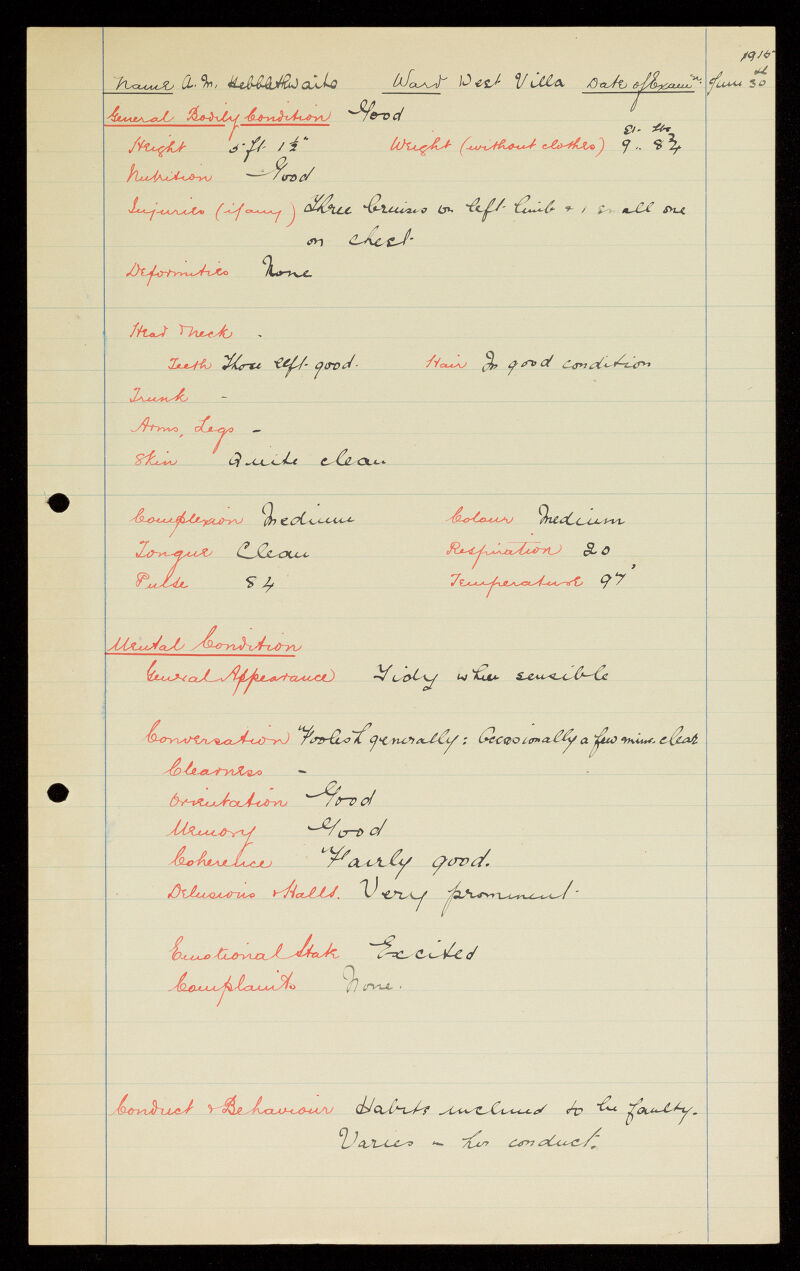 1915
Name A. M. Hebblethwaite Ward West Villa Date of Exam.n: June 30th
General Bodily Condition Good
Height 5 ft 1 ½" Weight (without clothes) 9 st. 8 ¾ lbs
Nutrition - Good
Injuries (if any) Three bruises on left limb & 1 small one
on chest
Deformities None
Head & neck -
Teeth Those left good. Hair In good condition
Trunk -
Arms, Legs -
Skin Quite clean
Complexion Medium Colour Medium
Tongue Clean Respiration 20
Pulse 84 Temperature 97°
Mental Condition
General Appearance Tidy when sensible
Conversation Foolish generally: Occasionally a few mins. clear
Clearness -
Orientation Good
Memory Good
Coherence Fairly good.
Delusions & Halls. Very prominent.
Emotional State Excited
Complaints None.
Conduct & Behaviour Habits inclined to be faulty.
Varies in her conduct.